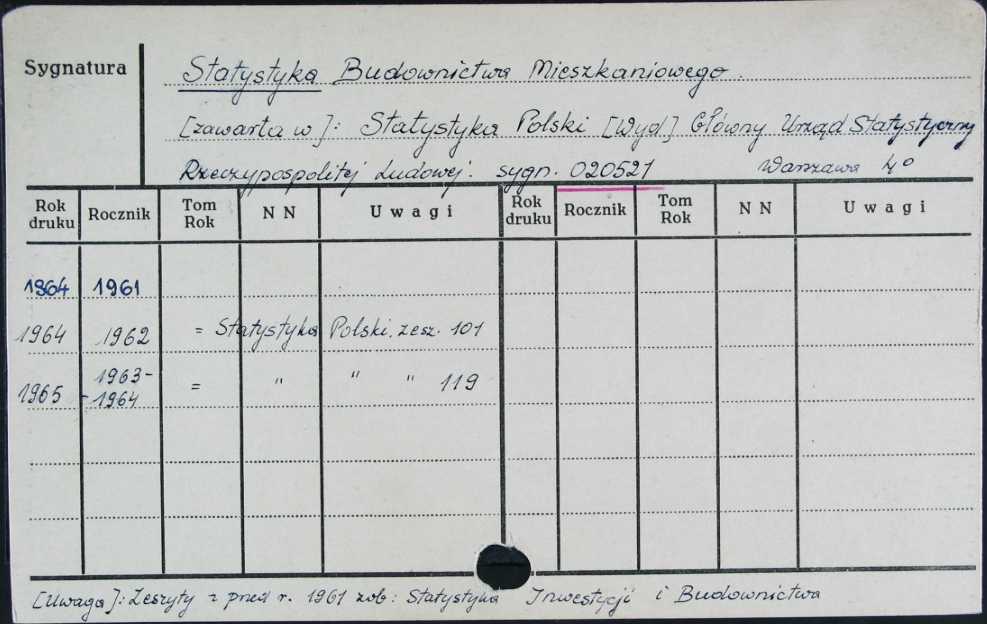 Sygnatura
Statystyka Budownictwa Mieszkaniowego.
[zawarta w]: Statystyka Polski [Wyd] Główny Urząd Statystyczny
Rzeczypospolitej Ludowej. sygn. 020521 Warszawa 4°
Rok druku Rocznik Tom Rok N N Uwagi Rok druku Rocznik Tom Rok N N Uwagi
1964 1961
1964 1962 = Statystyka Polski. zesz. 101
1965 1963-
-1964 = " " " 119
[Uwaga]: Zeszyty z przed r. 1961 zob: Statystyka Inwestycji i Budownictwa